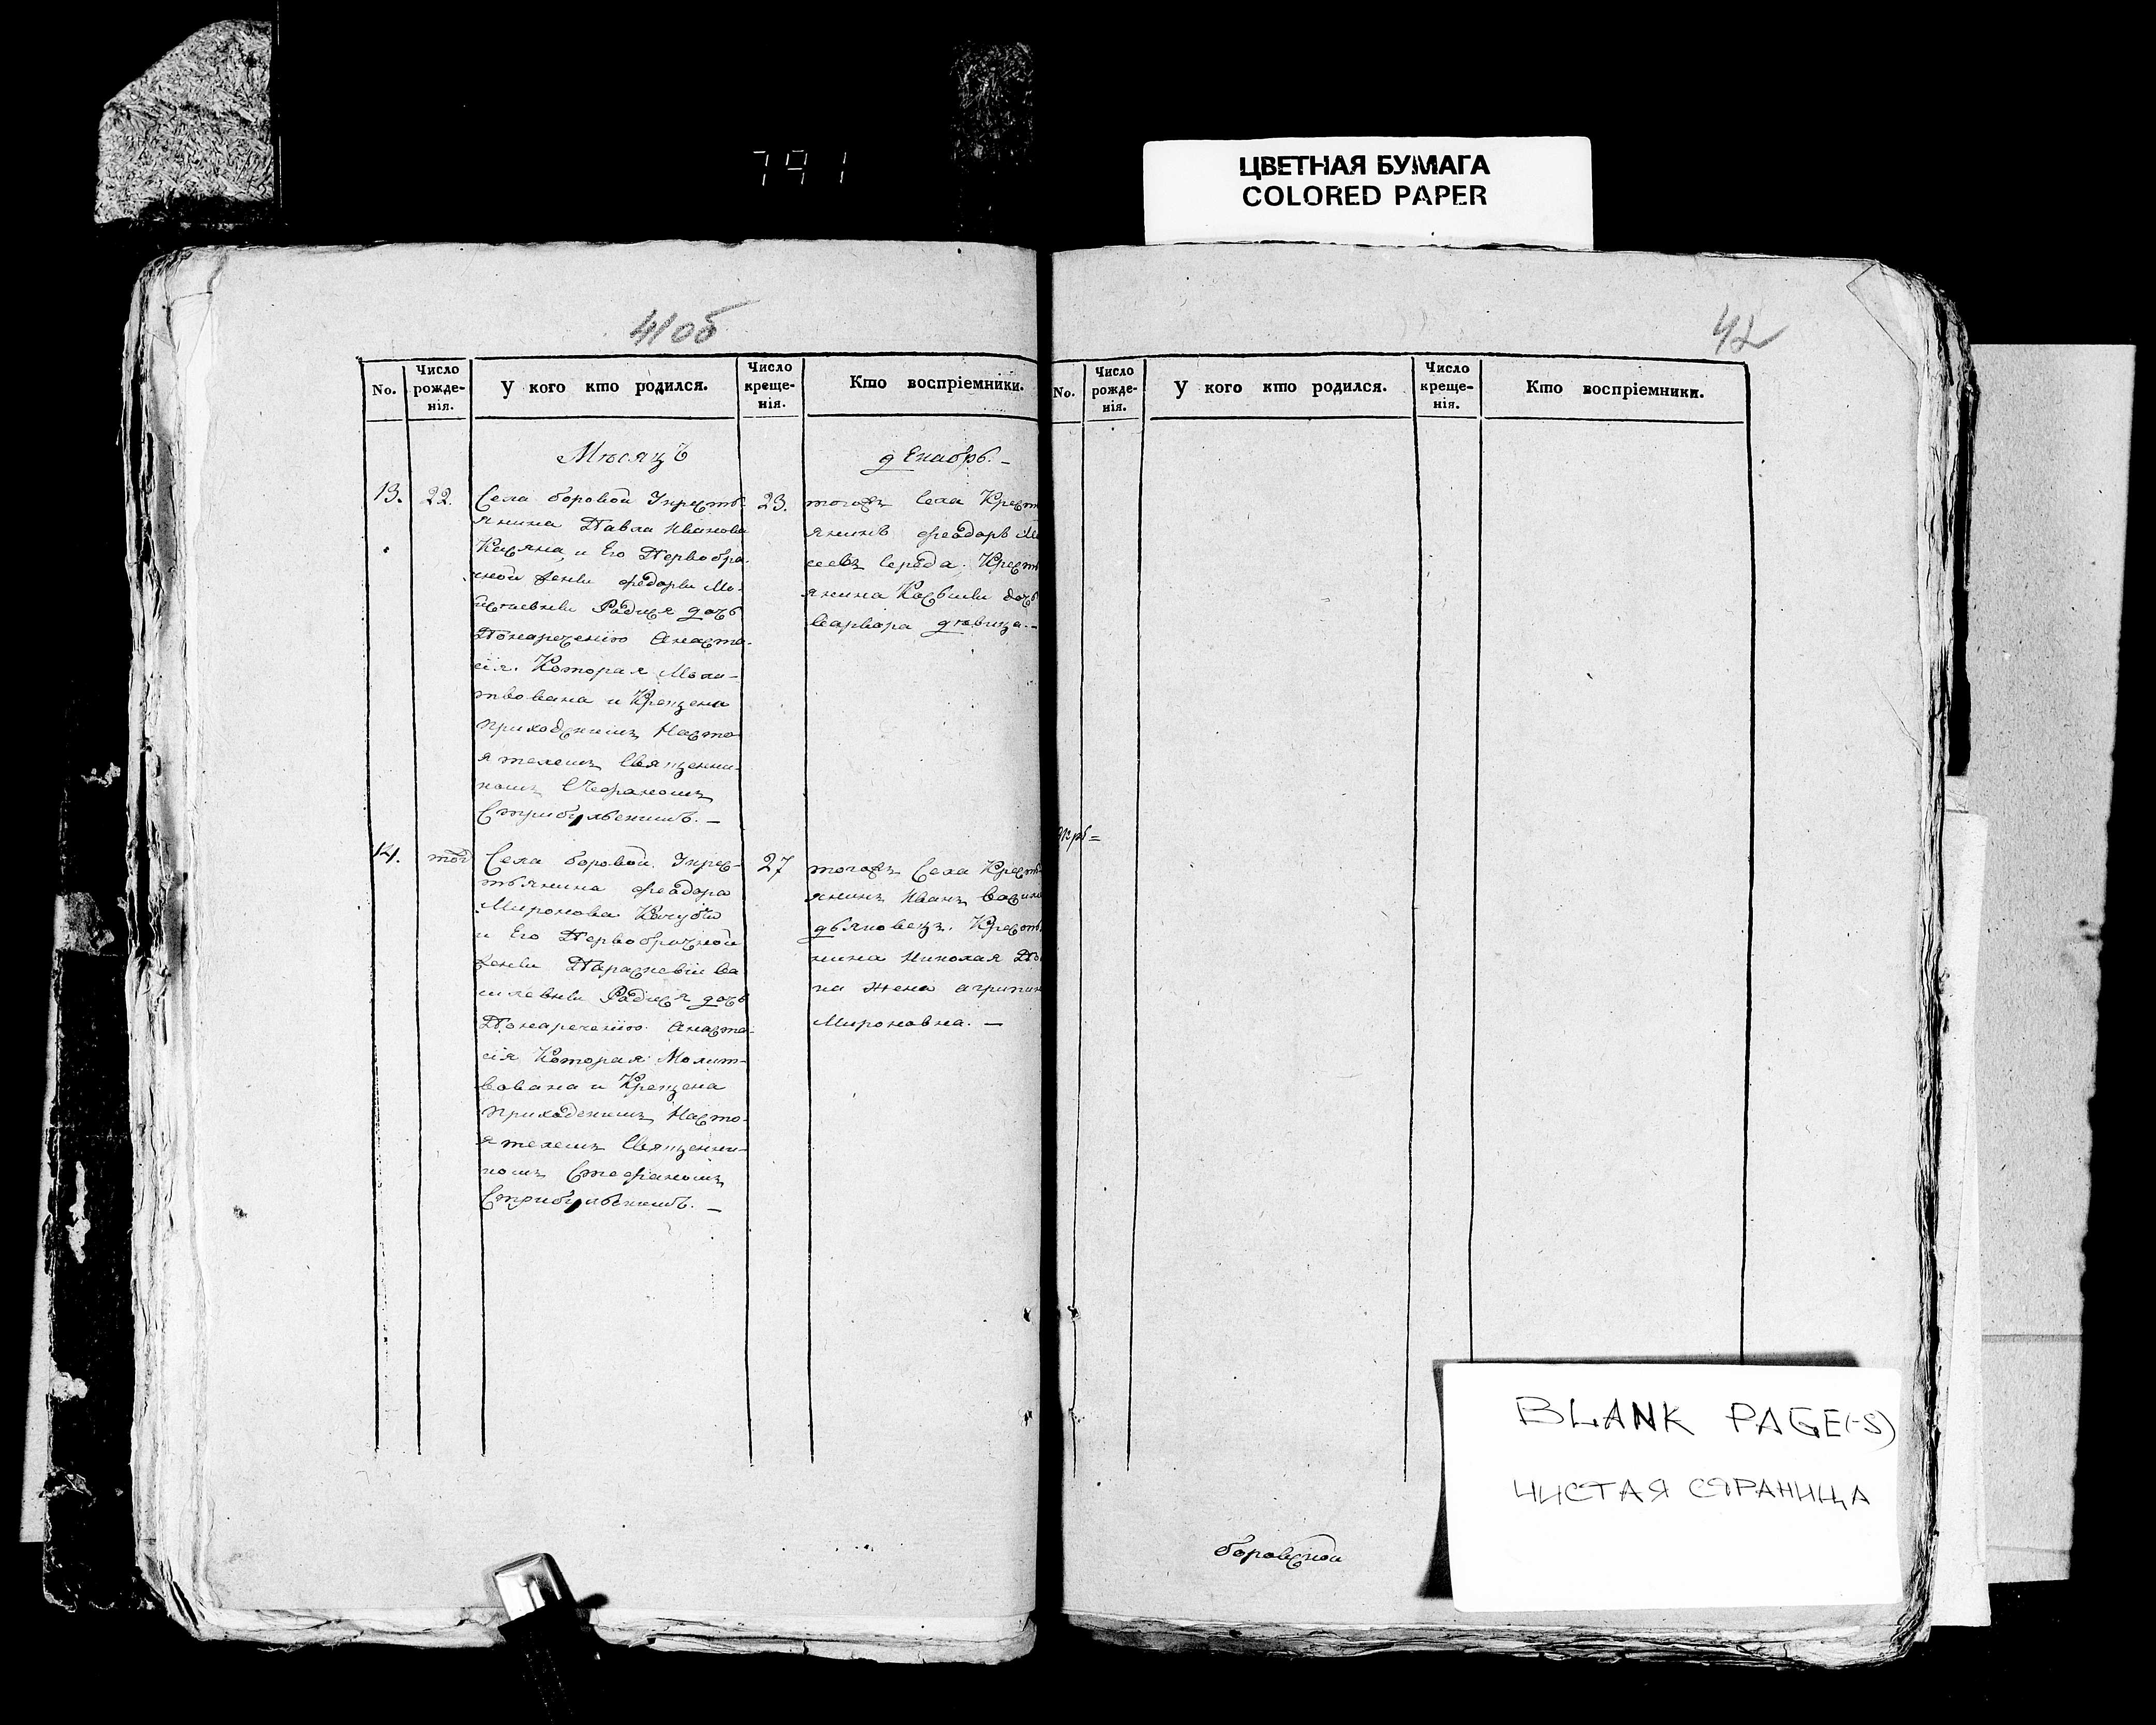 791
ЦВЕТНАЯ БУМАГА
COLORED PAPER
41об
No.
Число рожде-нія.
У кого кто родился.
Число креще-нія.
Кто воспріемники.
Мѣсяцъ
декабрь. –
13.
22.
Села боровой Укресть-
янина Павла Иванова
и Его Первобра-
чной жены
Родися дочь
Понаречению Анаста-
сія. Которая Моли-
твована и Крещена
приходскимъ Насто-
ятелемъ Священни-
комъ Стефаномъ
Стрибульскимъ. –
23.
тогожъ села Крест
янинъ феодоръ
середа; Крест
янина дочь
варвара девица. –
14.
тог
Села боровой Укрес-
тьянина феодора
Миронова Качубы
и Его Первобрачной
жены Параскевіи ва
силевны Родися дочь
Понаречению Анаста-
сія Которая Молит-
вована и Крещена
приходскимъ Насто-
ятелемъ Священни-
комъ Стефаномъ
Стрибульскимъ. –
27
тогожъ Села Крест
янинъ Иванъ
дьяковецъ. Крест
нина Николая
на жена агрипин
Мироновна. –
42
No.
Число рожде-нія.
У кого кто родился.
Число креще-нія.
Кто воспріемники.
боровской
BLANK PAGE(-S)
ЧИСТАЯ СТРАНИЦА